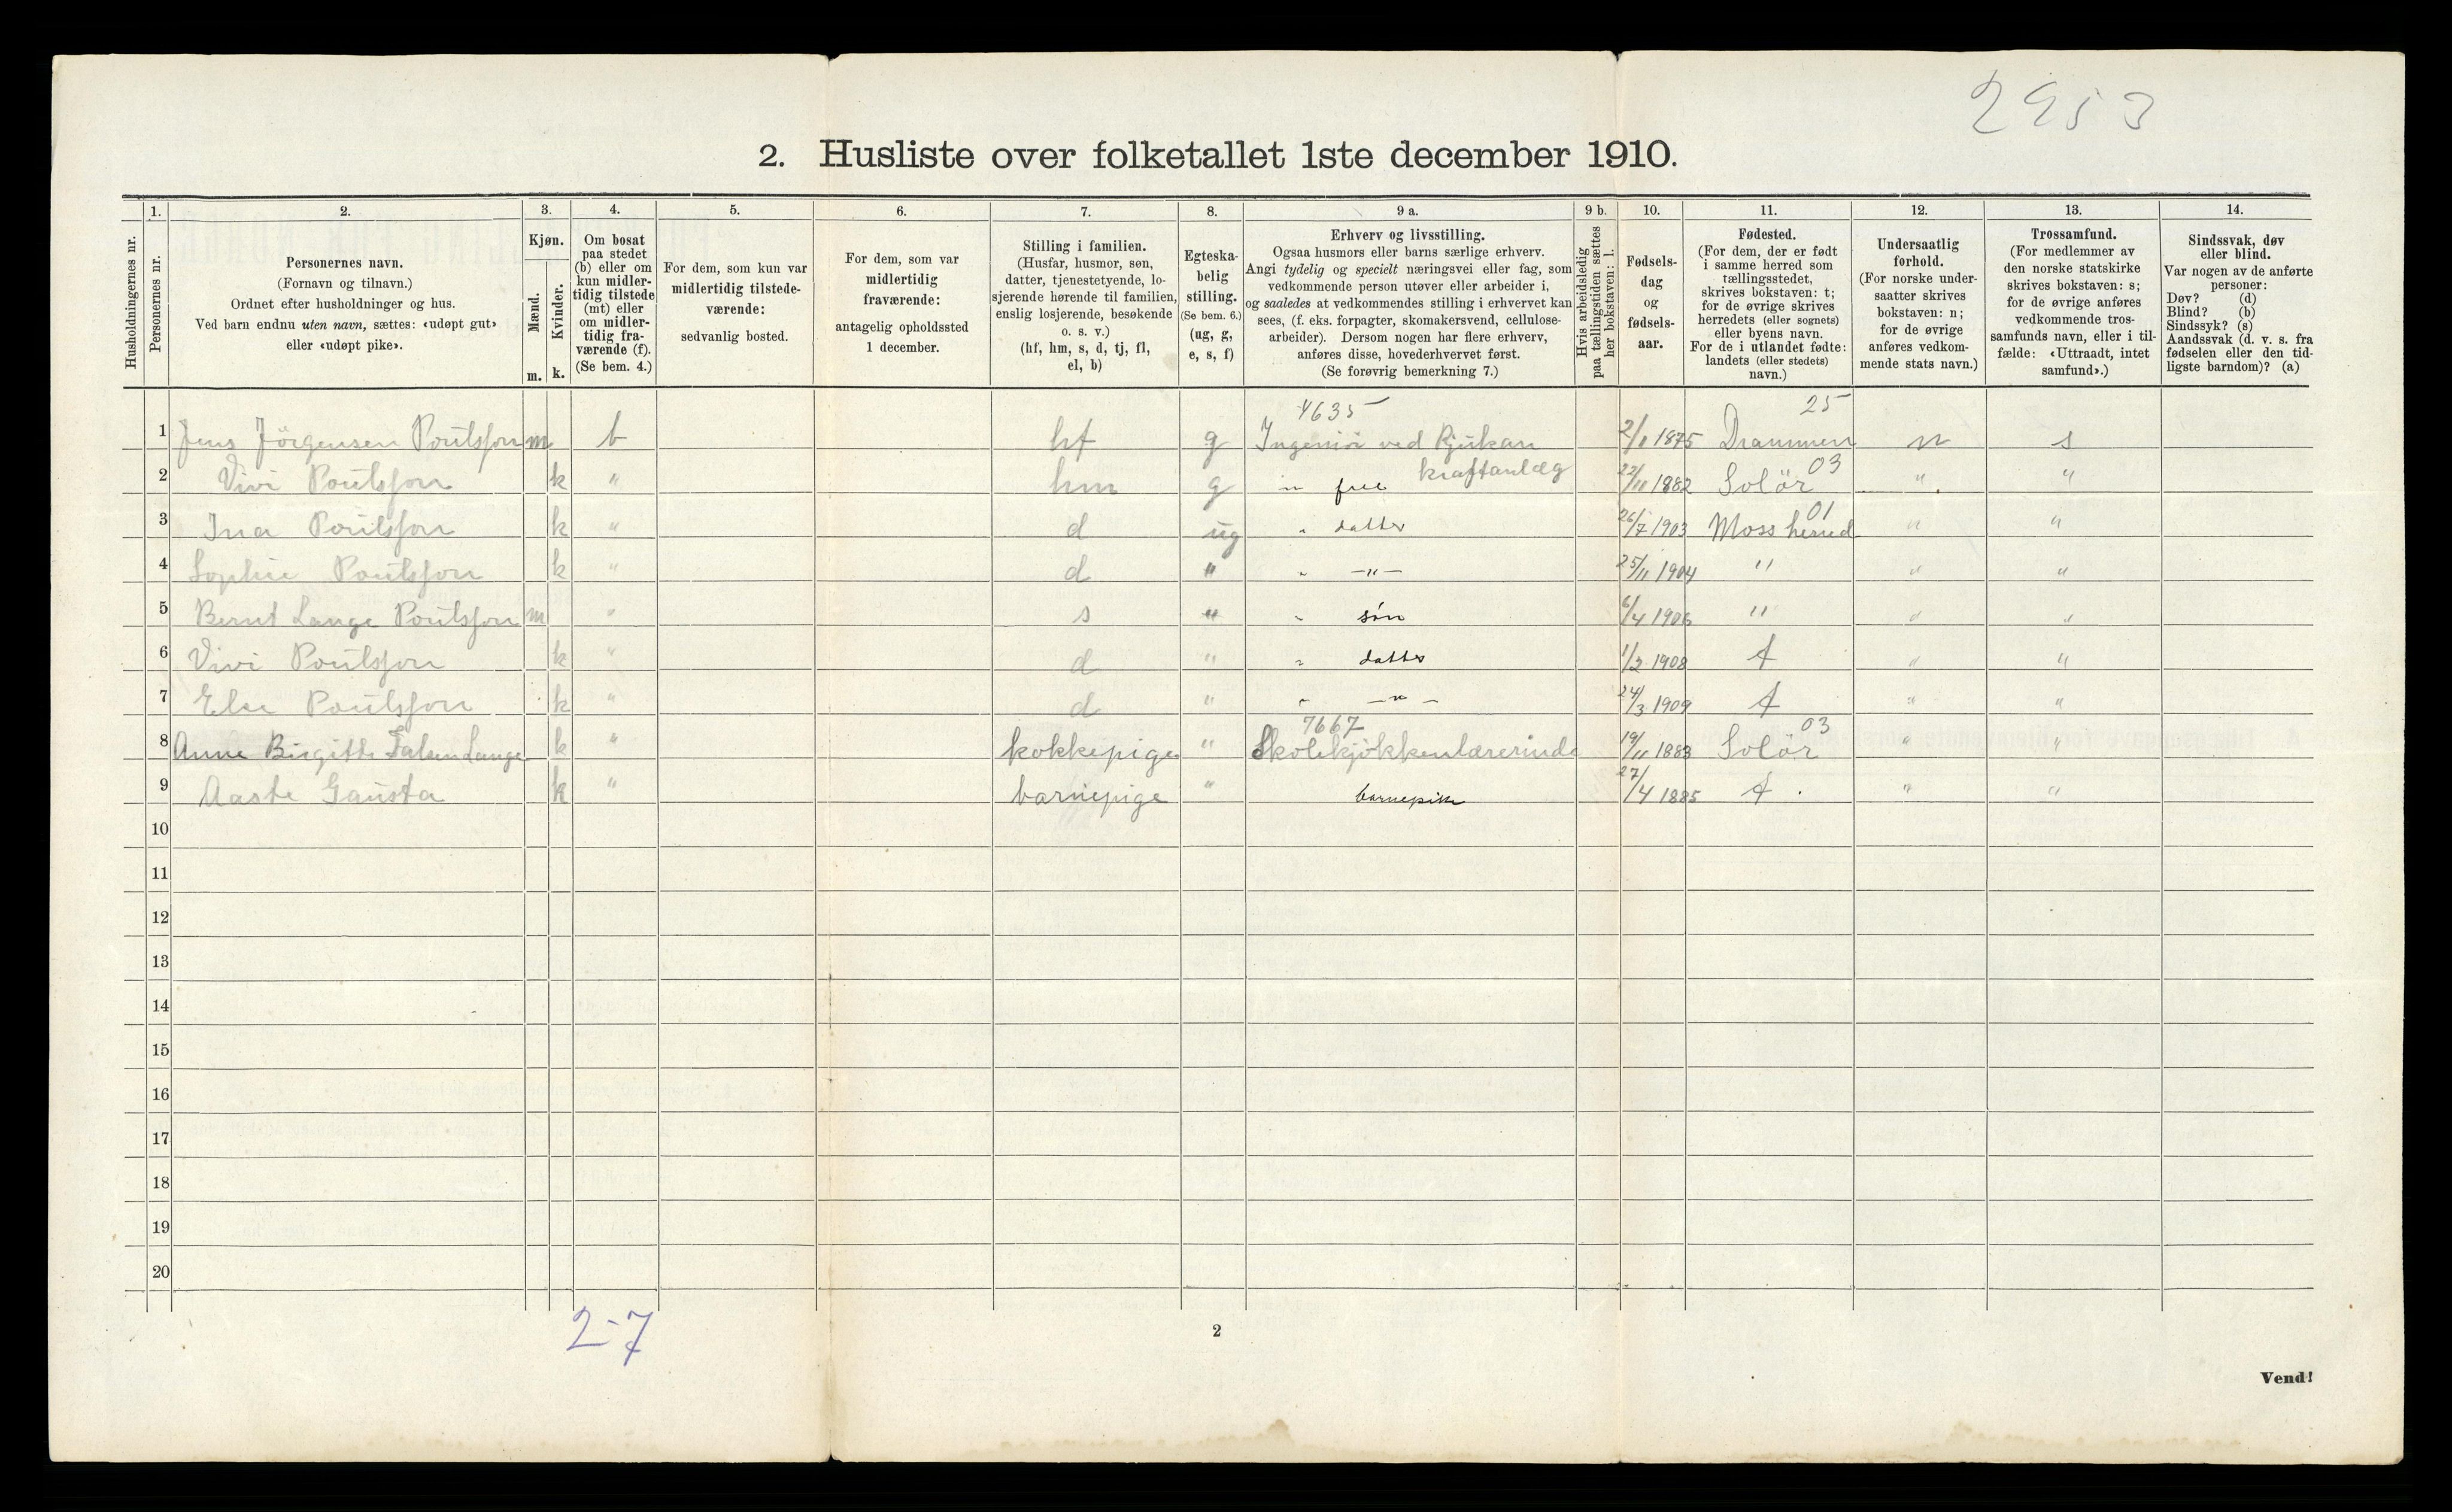 2953
2. Husliste over folketallet 1ste december 1910.
Husholdningernes nr.
1.
Personernes nr.
2.
Personernes navn.
(Fornavn og tilnavn.)
Ordnet efter husholdninger og hus.
Ved barn endnu uten navn, sættes: «udøpt gut»
eller «udøpt pike».
3.
Kjøn.
Mænd.
Kvinder.
m. k.
4.
Om bosat
paa stedet
(b) eller om
kun midler-
tidig tilstede
(mt) eller
om midler-
tidig fra-
værende (f).
(Se bem. 4.)
5.
For dem, som kun var
midlertidig tilstede-
værende:
sedvanlig bosted.
6.
For dem, som var
midlertidig
fraværende:
antagelig opholdssted
1 december.
7.
Stilling i familien.
(Husfar, husmor, søn,
datter, tjenestetyende, lo-
sjerende hørende til familien,
enslig losjerende, besøkende
o. s. v.)
(hf, hm, s, d, tj, fl,
el, b)
8.
Egteska-
belig
stilling.
(Se bem. 6.)
(ug, g,
e, s, f)
9 a.
Erhverv og livsstilling.
Ogsaa husmors eller barns særlige erhverv.
Angi tydelig og specielt næringsvei eller fag, som
vedkommende person utøver eller arbeider i,
og saaledes at vedkommendes stilling i erhvervet kan
sees, (f. eks. forpagter, skomakersvend, cellulose-
arbeider). Dersom nogen har flere erhverv,
anføres disse, hovederhvervet først.
(Se forøvrig bemerkning 7.)
9 b.
Hvis arbeidsledig
paa tællingstiden sættes
her bokstaven: l.
10.
Fødsels-
dag
og
fødsels-
aar.
11.
Fødested.
(For dem, der er født
i samme herred som
tællingsstedet,
skrives bokstaven: t;
for de øvrige skrives
herredets (eller sognets)
eller byens navn.
For de i utlandet fødte:
landets (eller stedets)
navn.)
12.
Undersaatlig
forhold.
(For norske under-
saatter skrives
bokstaven: n;
for de øvrige
anføres vedkom-
mende stats navn.)
13.
Trossamfund.
(For medlemmer av
den norske statskirke
skrives bokstaven: s;
for de øvrige anføres
vedkommende tros-
samfunds navn, eller i til-
fælde: «Uttraadt, intet
samfund».)
14.
Sindssvak, døv
eller blind.
Var nogen av de anførte
personer:
Døv? (d)
Blind? (b)
Sindssyk? (s)
Aandssvak (d. v. s. fra
fødselen eller den tid-
ligste barndom)? (a)
4635 25
1 Jens Jörgensen Poulsson m b hf g Ingeniör ved Rjukan 1875 Drammen n s
kraftanlæg 03
2 Vivi Poulsson k " hm g " frue 22/11 1882 Solör " "
01
3 Ina Poulsson k " d ug " datter 26/7 1903 Moss herred " "
4 Sophie Poulsson k " d " " —"— 25/11 1904 " " "
5 Bernt Lange Poulsson m " s " " søn 6/4 1906 " " "
6 Vivi Poulsson k " d " " datter 1/2 1908 t " "
7 Else Poulsson k " d " " —"— 24/3 1909 t " "
7667 03
8 Anne Birgitte Falsen Lange k " kokkepige " Skolekjökkenlærerinde 19/11 1883 Solör " "
9 Aaste Gausta k " barnepige " barnepike 27/4 1885 t " "
10
11
12
13
14
15
16
17
18
19
20
2-7
2
Vend!